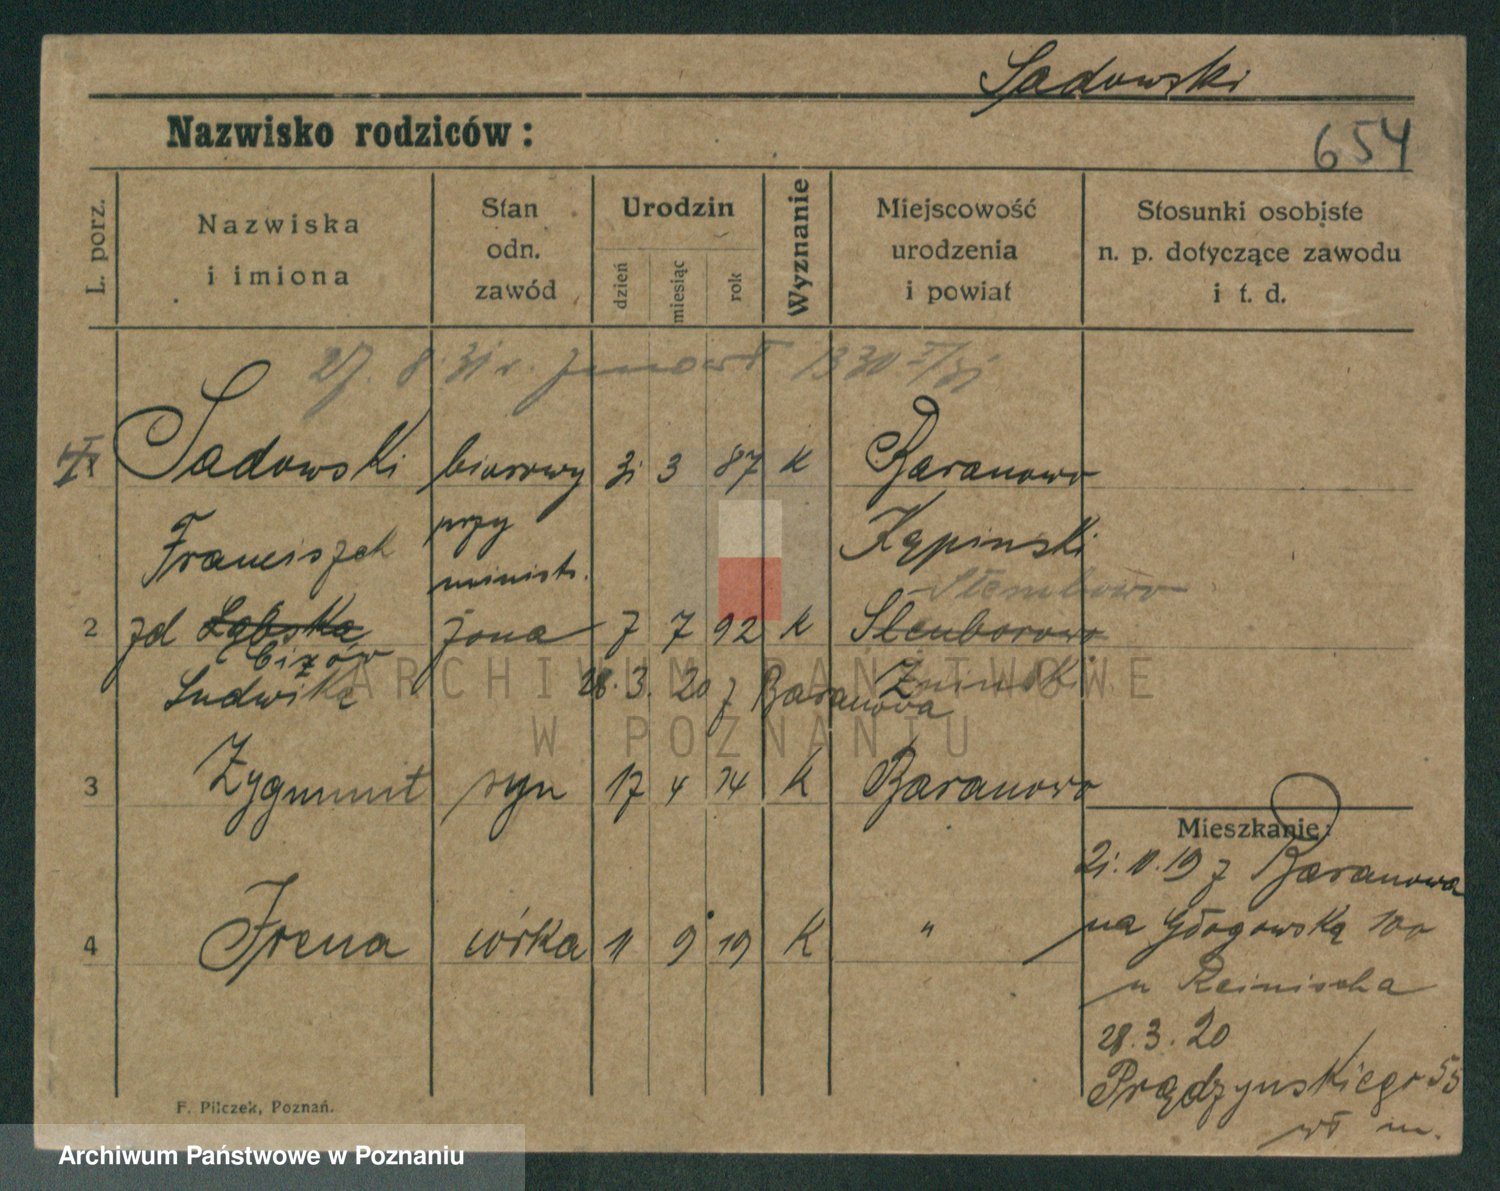 Sadowski
Nazwisko rodziców:
654
L. porz.
Nazwiska
i imiona
Stan
odn.
zawód
Urodzin
dzień
miesiąc
rok
Wyznanie
Miejscowość
urodzenia
i powiat
Stosunki osobiste
n. p. dotyczące zawodu
i t. d.
27. 8. 31 r.
Sadowski biurowy 31 3 87 K Baranowo
Franciszek przy Kępinski
minist. Słembowo
2 zd Łąbska żona 7 7 92 K
Cizów
Ludwika 28. 3. 20 z Baranowa Żninski
ARCHIWUM PAŃSTWOWE
W POZNANIU
3 Zygmunt syn 17 4 14 K Baranowo
Mieszkanie:
21. 11. 19 z Baranowa
4 Irena córka 11 9 19 K "
na Głogowską 100
u Reinischa
28. 3. 20
Prądzynskiego 55
wł m.
F. Pilczek, Poznań.
Archiwum Państwowe w Poznaniu